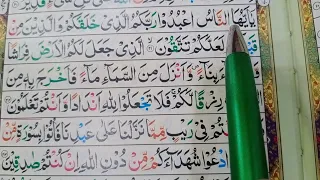 يٰۤاَيُّهَا النَّاسُ اعْبُدُوْا رَبَّكُمُ الَّذِيْ خَلَقَكُمْ
لَعَلَّكُمْ تَتَّقُوْنَ الَّذِيْ جَعَلَ لَكُمُ الْاَرْضَ فِرَاشًا
بِنَآءً وَّاَنْزَلَ مِنَ السَّمَآءِ مَآءً فَاَخْرَجَ بِهٖ
رِزْقًا لَّكُمْ فَلَا تَجْعَلُوْا لِلّٰهِ اَنْدَادًا وَّاَنْتُمْ تَعْلَمُوْنَ
كُنْتُمْ فِيْ رَيْبٍ مِّمَّا نَزَّلْنَا عَلٰى عَبْدِنَا فَاْتُوْا بِسُوْرَةٍ مِّنْ
وَادْعُوْا شُهَدَآءَكُمْ مِّنْ دُوْنِ اللّٰهِ اِنْ كُنْتُمْ صٰدِقِيْنَ